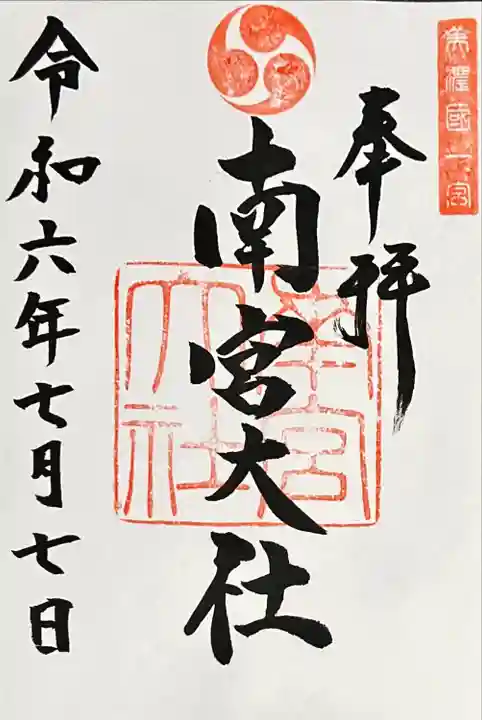 美濃國一宮
奉拝
南宮大社
南宮大社
令和六年七月七日